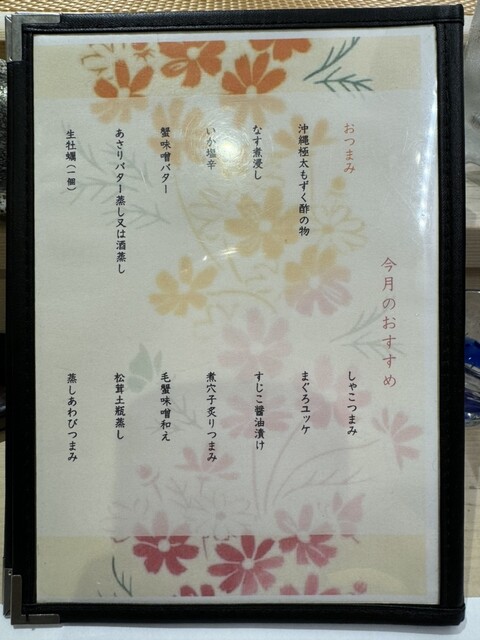 今月のおすすめ
おつまみ
沖縄極太もずく酢の物
なす煮浸し
いか塩辛
蟹味噌バター
あさりバター蒸し又は酒蒸し
生牡蠣(一個)
しゃこつまみ
まぐろユッケ
すじこ醤油漬け
煮穴子炙りつまみ
毛蟹味噌和え
松茸土瓶蒸し
蒸しあわびつまみ